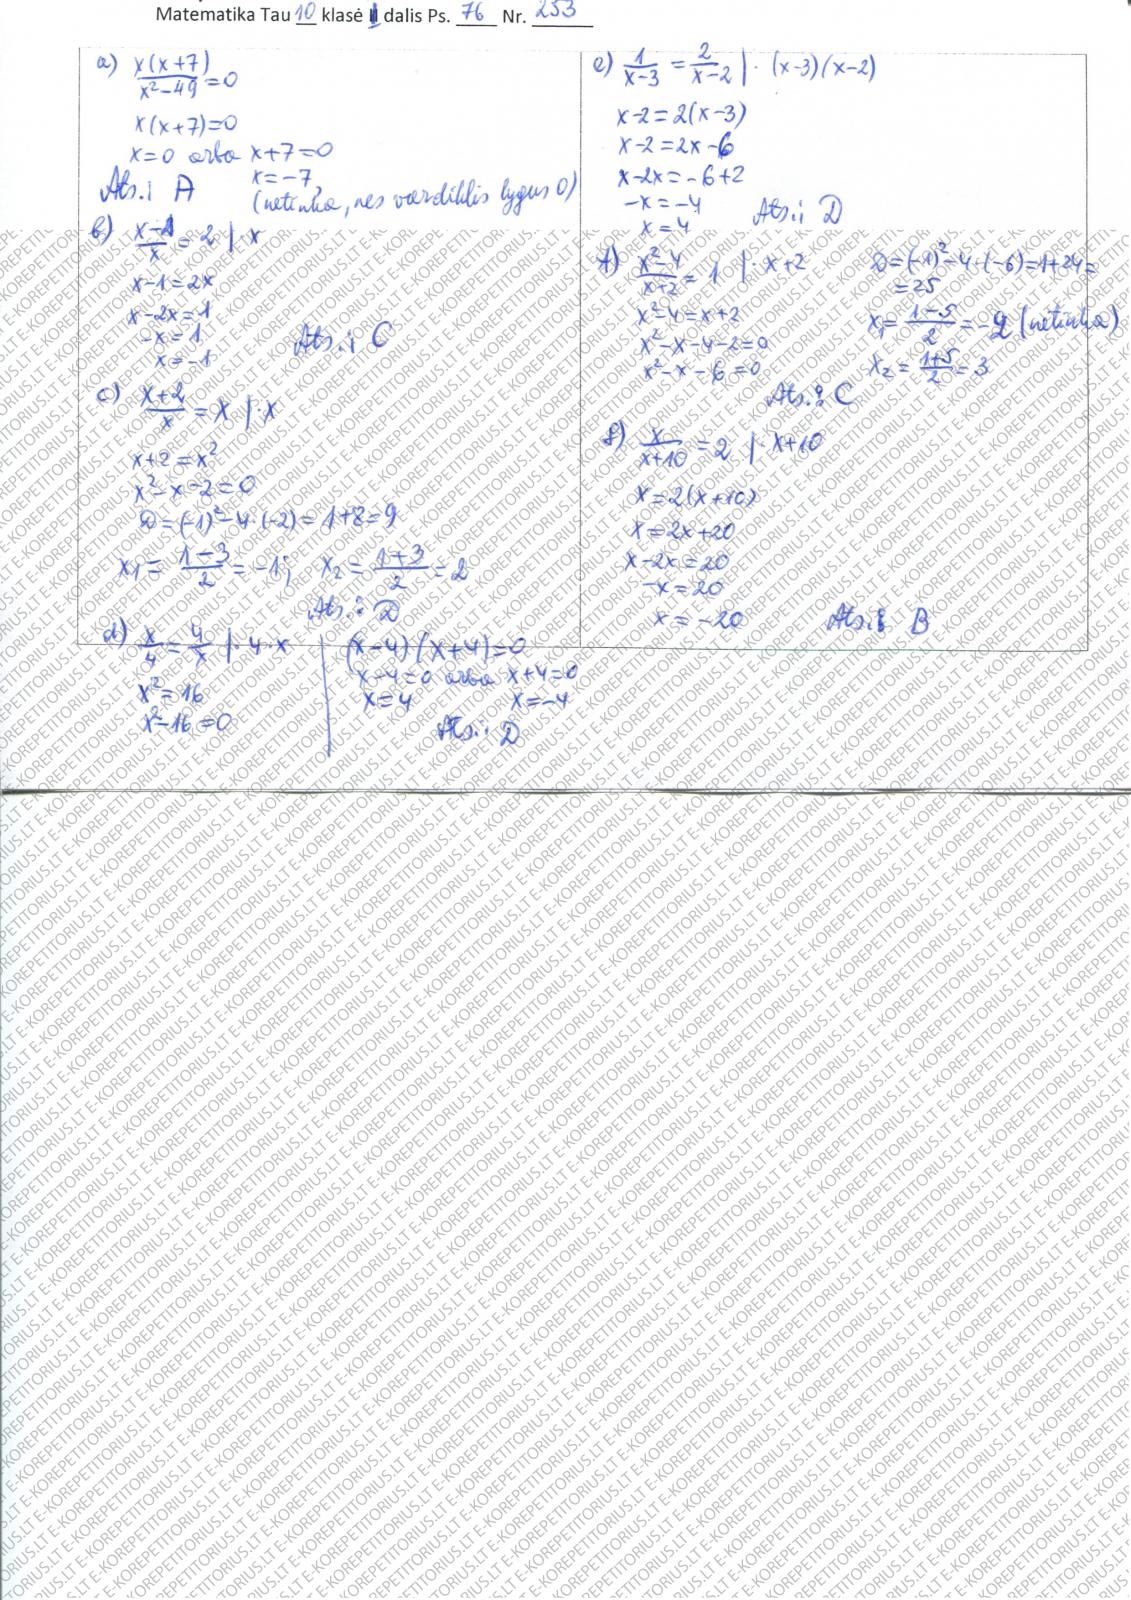 Matematika Tau 10 klasė II dalis Ps. 76 Nr. 253
a) x(x+7)/(x²-49) = 0
x(x+7)=0
x=0 arba x+7=0
x=-7,
(netinka, nes vardiklis lygus 0)
Ats.: A
b) (x-1)/x = 2 | · x
x-1=2x
x-2x=1
-x=1
x=-1
Ats.: C
c) (x+2)/x = x | · x
x+2=x²
x²-x-2=0
D=(-1)²-4·(-2)=1+8=9
x₁ = (1-3)/2 = -1; x₂ = (1+3)/2 = 2
Ats.: D
d) x/4 = 4/x | · 4 · x
x²=16
x²-16=0
(x-4)(x+4)=0
x-4=0 arba x+4=0
x=4 x=-4
Ats.: D
e) 1/(x-3) = 2/(x-2) | · (x-3)(x-2)
x-2=2(x-3)
x-2=2x-6
x-2x=-6+2
-x=-4
x=4
Ats.: D
f) (x²-4)/(x+2) = 1 | · x+2
x²-4=x+2
x²-x-4-2=0
x²-x-6=0
D=(-1)²-4·(-6)=1+24=
=25
x₁ = (1-5)/2 = -2 (netinka)
x₂ = (1+5)/2 = 3
Ats.: C
g) x/(x+10) = 2 | · x+10
x=2(x+10)
x=2x+20
x-2x=20
-x=20
x=-20
Ats.: B
E-KOREPETITORIUS.LT